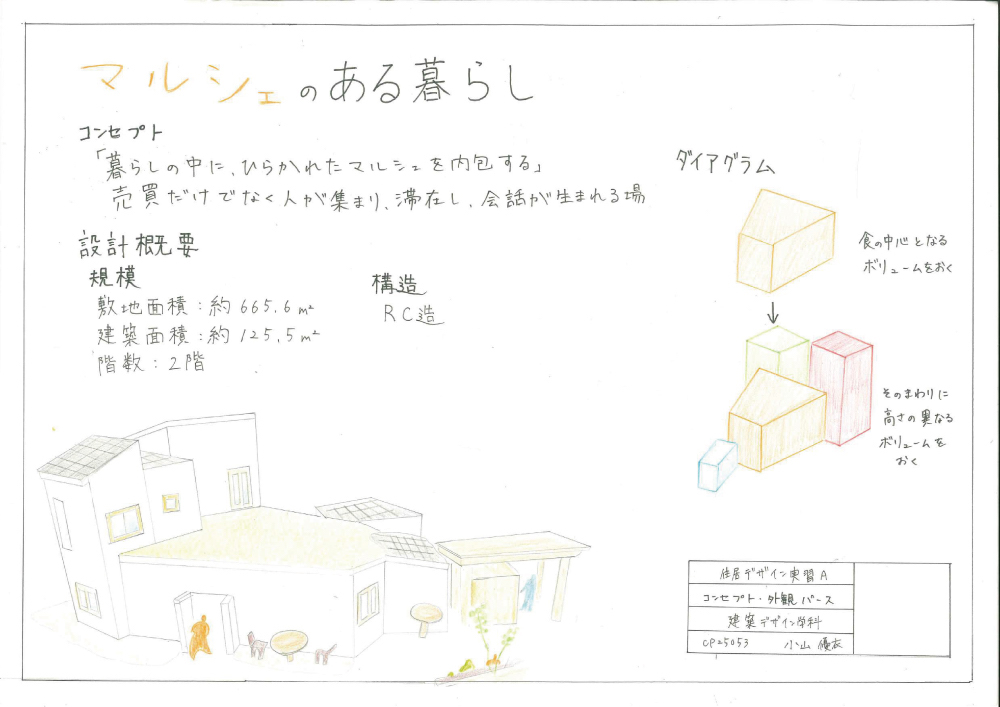 マルシェのある暮らし
コンセプト
「暮らしの中に、ひらかれたマルシェを内包する」
売買だけでなく人が集まり、滞在し、会話が生まれる場
設計概要
規模
敷地面積：約665.6m²
建築面積：約125.5m²
階数：2階
構造
RC造
ダイアグラム
食の中心となる
ボリュームをおく
そのまわりに
高さの異なる
ボリュームを
おく
住居デザイン実習A
コンセプト・外観パース
建築デザイン学科
CP25053 小山優衣